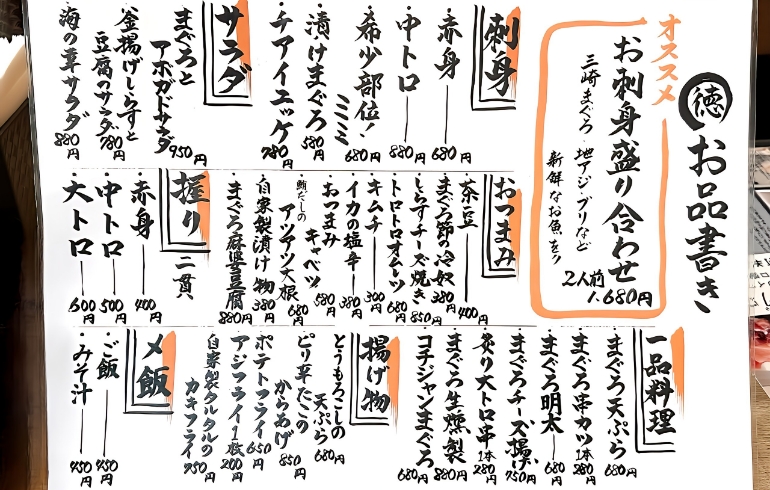 徳 お品書き
オススメ
お刺身盛り合わせ
三崎まぐろ・地アジ・ブリなど
新鮮なお魚を♪
2人前
1.680円
刺身
・赤身 680円
・中トロ 880円
・希少部位! ミミミ 680円
・漬けまぐろ 580円
・チアイユッケ 780円
サラダ
・まぐろと
アボガドサラダ 950円
・釜揚げしらすと
豆腐のサラダ 780円
・海の幸サラダ 880円
おつまみ
・茶豆 400円
・まぐろ節の冷奴 380円
・しらすチーズ焼き 850円
・トロトロオムレツ 680円
・キムチ 300円
・イカの塩辛 380円
・おつまみ
キャベツ 580円
・鮪だしの
アツアツ大根 680円
・自家製漬け物 380円
・まぐろ麻婆豆腐 880円
握り 二貫
・赤身 400円
・中トロ 500円
・大トロ 600円
一品料理
・まぐろ天ぷら 680円
・まぐろ串カツ 1本 280円
・まぐろ明太 680円
・まぐろチーズ揚げ 750円
・炙り大トロ串 1本 280円
・まぐろ生燻製 880円
・コチジャンまぐろ 680円
揚げ物
・とうもろこしの
天ぷら 680円
・ピリ辛たこの
からあげ 850円
・ポテトフライ 650円
・アジフライ 1枚 200円
・自家製タルタルの
カキフライ 950円
〆飯
・ご飯 450円
・みそ汁 450円